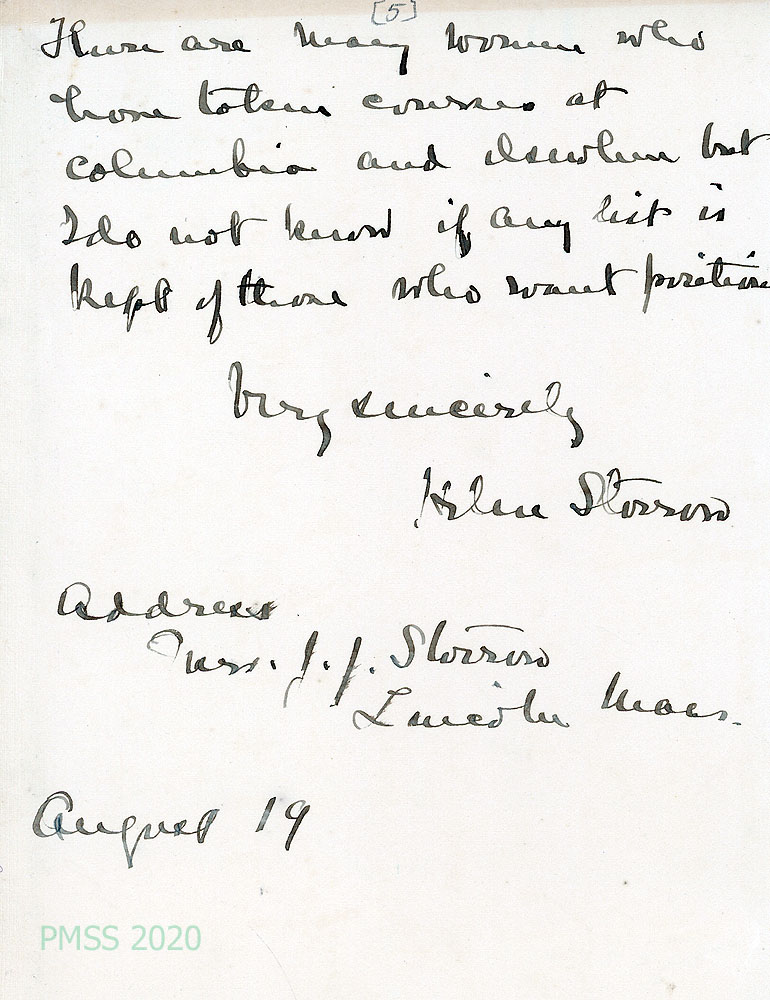 [5]
There are many women who
have taken courses at
Columbia and elsewhere but
I do not know if any list is
kept of those who want position
Very sincerely
Helen Storrow
Address
Mrs. J. J. Storrow
Lincoln Mass.
August 19
PMSS 2020